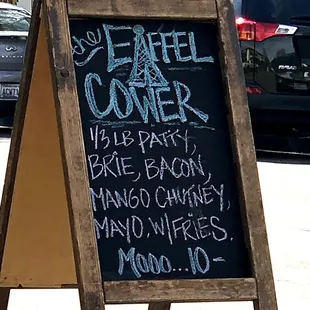 the EIFFEL
COWER
1/3 LB PATTY,
BRIE, BACON,
MANGO CHUTNEY,
MAYO. W/FRIES.
MOOO...10-